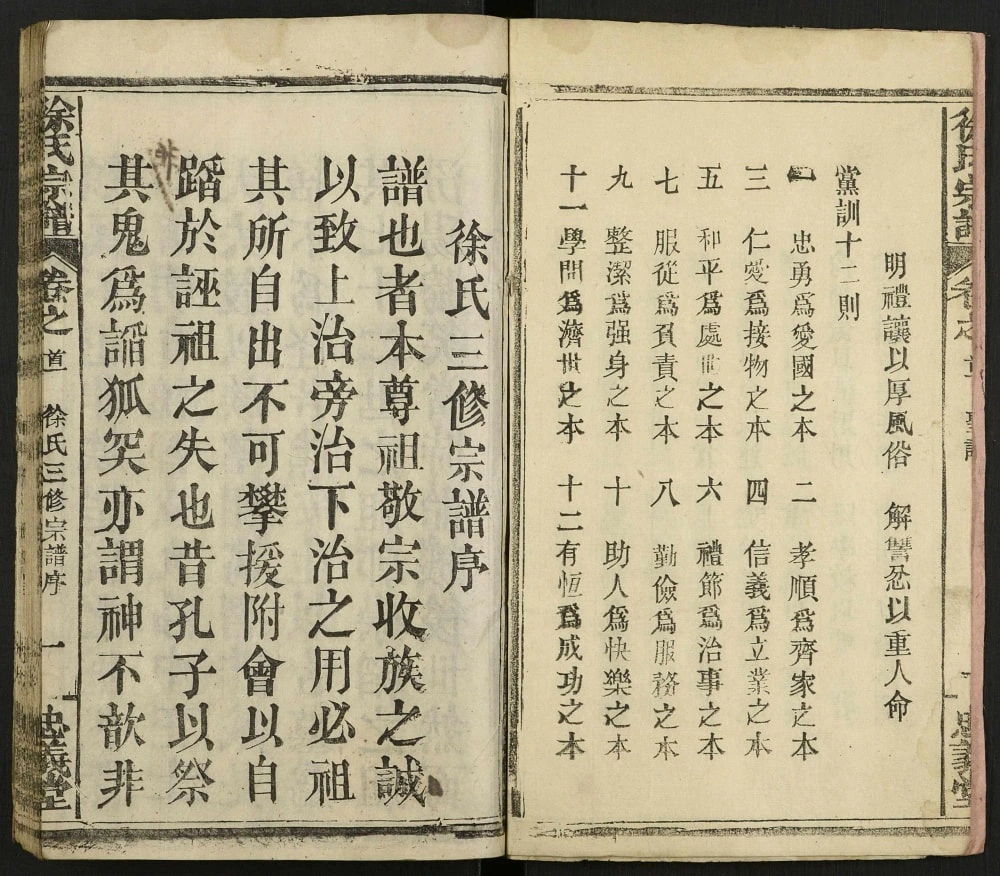 徐氏宗譜 卷之首 聖諭 一 忠義堂
明禮讓以厚風俗 解讐忿以重人命
黨訓十二則
一 忠勇爲愛國之本 二 孝順爲齊家之本
三 仁愛爲接物之本 四 信義爲立業之本
五 和平爲處世之本 六 禮節爲治事之本
七 服從爲負責之本 八 勤儉爲服務之本
九 整潔爲强身之本 十 助人爲快樂之本
十一學問爲濟世之本 十二有恒爲成功之本
徐氏三修宗譜序
譜也者本尊祖敬宗收族之誠
以致上治旁治下治之用必祖
其所自出不可攀援附會以自
蹈於誣祖之失也昔孔子以祭
其鬼爲謟狐突亦謂神不歆非
徐氏宗譜 卷之首 徐氏三修宗譜序 一 忠義堂